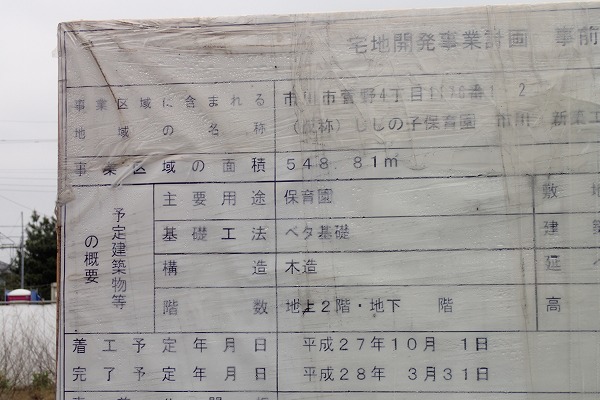 宅地開発事業計画 事前
事業区域に含まれる 市川市菅野4丁目
地域の名称 (仮称)ししの子保育園 市川 新築工
事業区域の面積 548.81㎡
予定建築物等の概要
主要用途 保育園 敷地
基礎工法 ベタ基礎 建築
構造 木造 延べ
階数 地上2階・地下 階 高
着工予定年月日 平成27年10月 1日
完了予定年月日 平成28年 3月31日